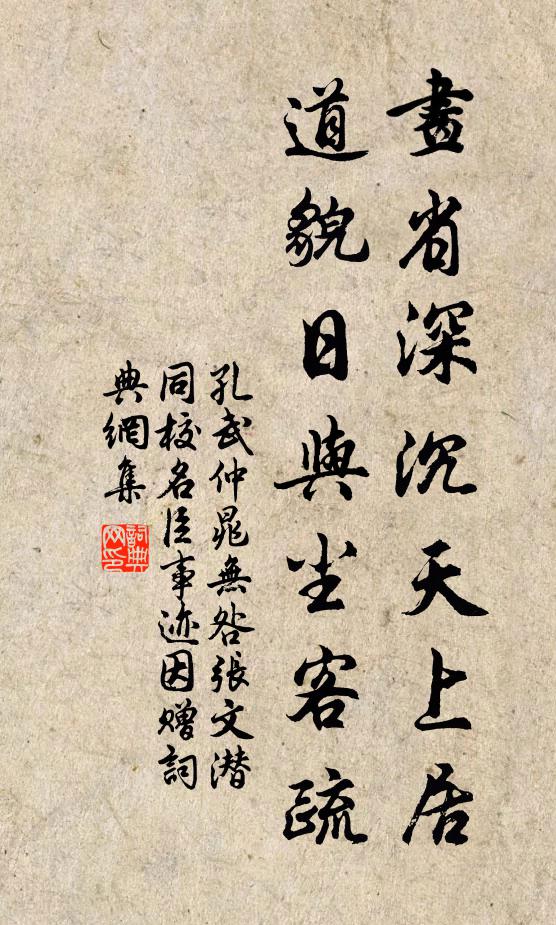 畫省深沉天上居
道貌日與尘客疏
孔武仲晁無咎張文潜
同校名臣事迹因贈詞
典網集
詞典
网印